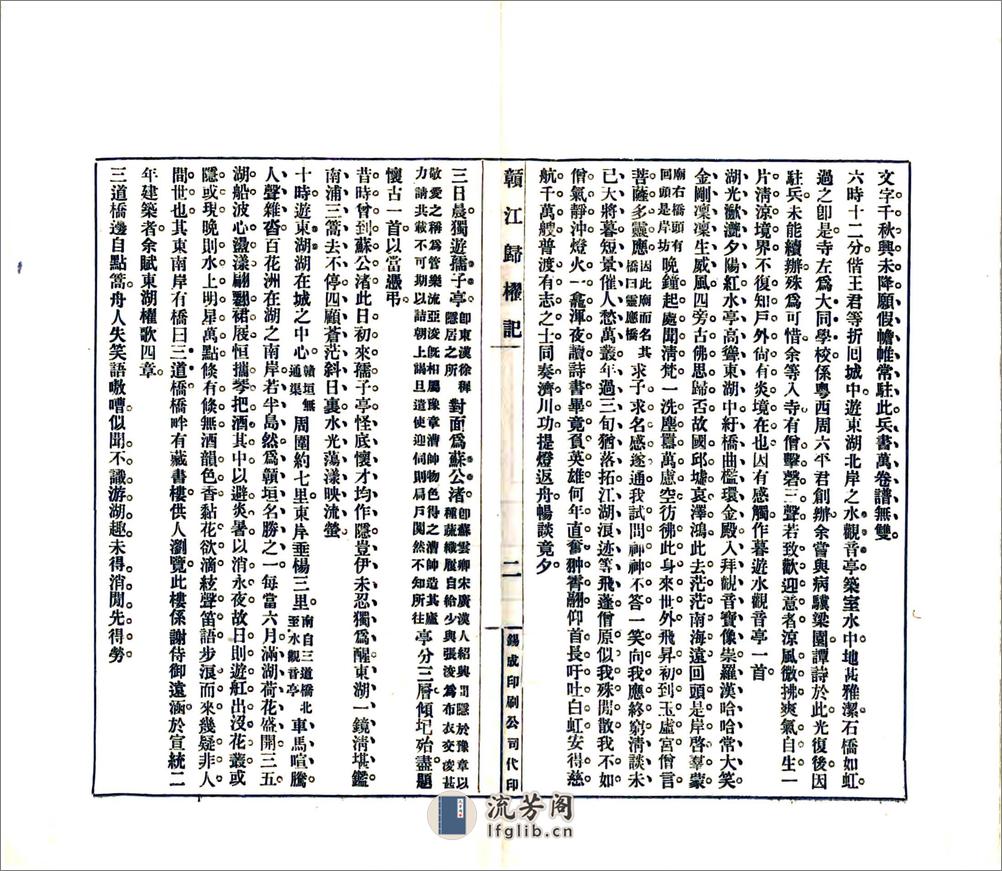 文字千秋興未降願假幨帷常駐此兵書萬卷譜無雙
六時十二分偕王君等折囘城中遊東湖北岸之水觀音亭築室水中地甚雅潔石橋如虹
過之卽是寺左爲大同學校係粵西周六平君創辦余嘗與病驥梁園譚詩於此光復後因
駐兵未能續辦殊爲可惜余等入寺有僧擊磬三聲若致歡迎意者涼風微拂爽氣自生一
片淸涼境界不復知戶外尙有炎境在也因有感觸作暮遊水觀音亭一首
湖光瀲灩夕陽紅水亭高聳東湖中紆橋曲檻環金殿入拜觀音寶像崇羅漢哈哈常大笑
金剛凜凜生威風四旁古佛思歸否故國邱墟哀澤鴻此去茫茫南海遠回頭是岸啓羣蒙
廟右橋頭有回頭是岸坊晚鐘起處聞淸梵一洗塵囂萬慮空彷彿此身來世外飛昇初到玉虛宮僧言
菩薩多靈應因此廟而名其橋曰靈應橋求子求名感遂通我試問神神不答一笑向我應終窮淸談未
已大將暮短景催人愁萬叢年過三旬猶落拓江湖浪迹等飛蓬僧原似我殊閒散我不如
僧氣靜沖燈火一龕渾夜讀詩書畢竟負英雄何年直奮翀霄翮仰首長吁吐白虹安得慈
航千萬艘普渡有志之士同奏濟川功提燈返舟暢談竟夕
贛江歸櫂記
二
錫成印刷公司代印
三日晨獨遊孺子亭卽東漢徐穉隱居之所對面爲蘇公渚卽蘇雲卿宋廣漢人紹興間隱於豫章以種蔬織屨自給少與張浚爲布衣交浚甚
敬愛之稱爲管樂流亞浚旣相屬豫章漕帥物色得之漕帥造其廬力請共載不可期以詰朝上謁旦遣使迎伺則扃戶闃然不知所往亭分三層傾圮殆盡題
懷古一首以當憑弔
昔時曾到蘇公渚此日初來孺子亭怪底懷才均作隱豈伊未忍獨爲醒東湖一鏡淸堪鑑
南浦三篙去不停四顧蒼茫斜日裏水光蕩漾映流螢
十時遊東湖湖在城之中心贛垣無通渠周圍約七里東岸垂楊三里南自三道橋北至水觀音亭車馬喧騰
人聲雜沓百花洲在湖之南岸若半島然爲贛垣名勝之一每當六月滿湖荷花盛開三五
湖船波心盪漾翩翩裙屐恒攜琴把酒其中以避炎暑以消永夜故日則遊舡出沒花叢或
隱或現晚則水上明星萬點倏有倏無酒韻色香黏花欲滴絃聲笛語步浪而來幾疑非人
間世也其東南岸有橋曰三道橋橋畔有藏書樓供人瀏覽此樓係謝侍御遠涵於宣統二
年建築者余賦東湖櫂歌四章
三道橋邊自點篙舟人失笑語嗷嘈似聞不識游湖趣未得消閒先得勞
流芳阁
lfglib.cn